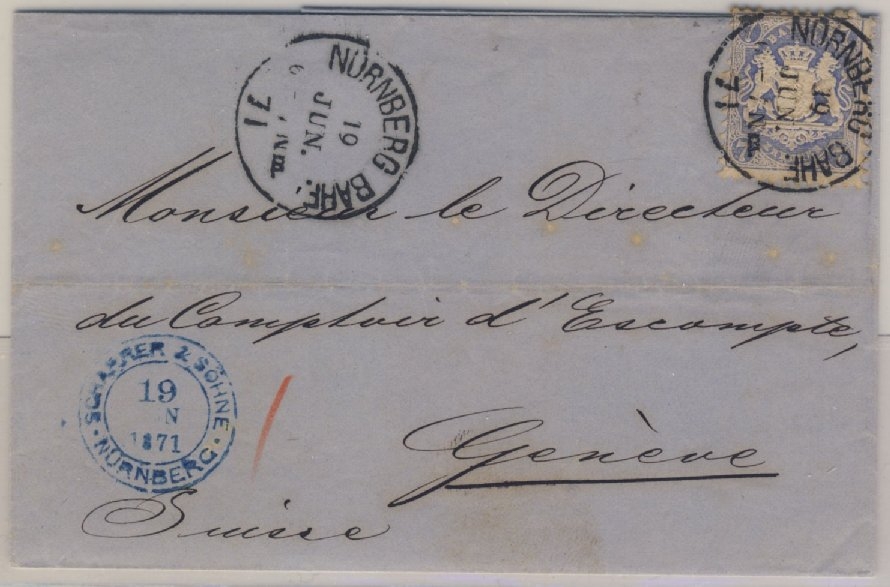 NÜRNBERG BAHF.
19
JUN.
71
NÜRNBERG BAHF.
19
JUN.
71
Monsieur le Directeur
du Comptoir d'Escompte,
SCHARRER & SÖHNE
19
1871
NÜRNBERG
Genève
Suisse